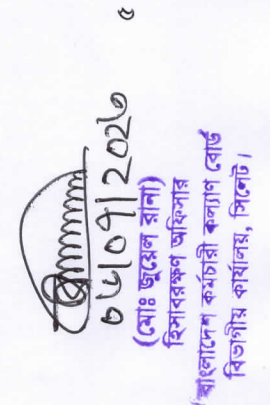 ০৬/০৭/২০২৩
(মোঃ জুয়েল রানা)
হিসাবরক্ষণ অফিসার
বাংলাদেশ কর্মচারী কল্যাণ বোর্ড
বিভাগীয় কার্যালয়, সিলেট।